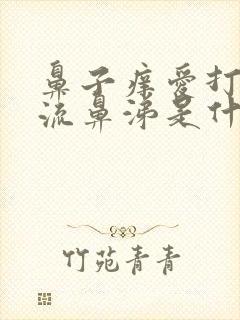 鼻子痒爱打
流鼻涕是什
竹苑青青